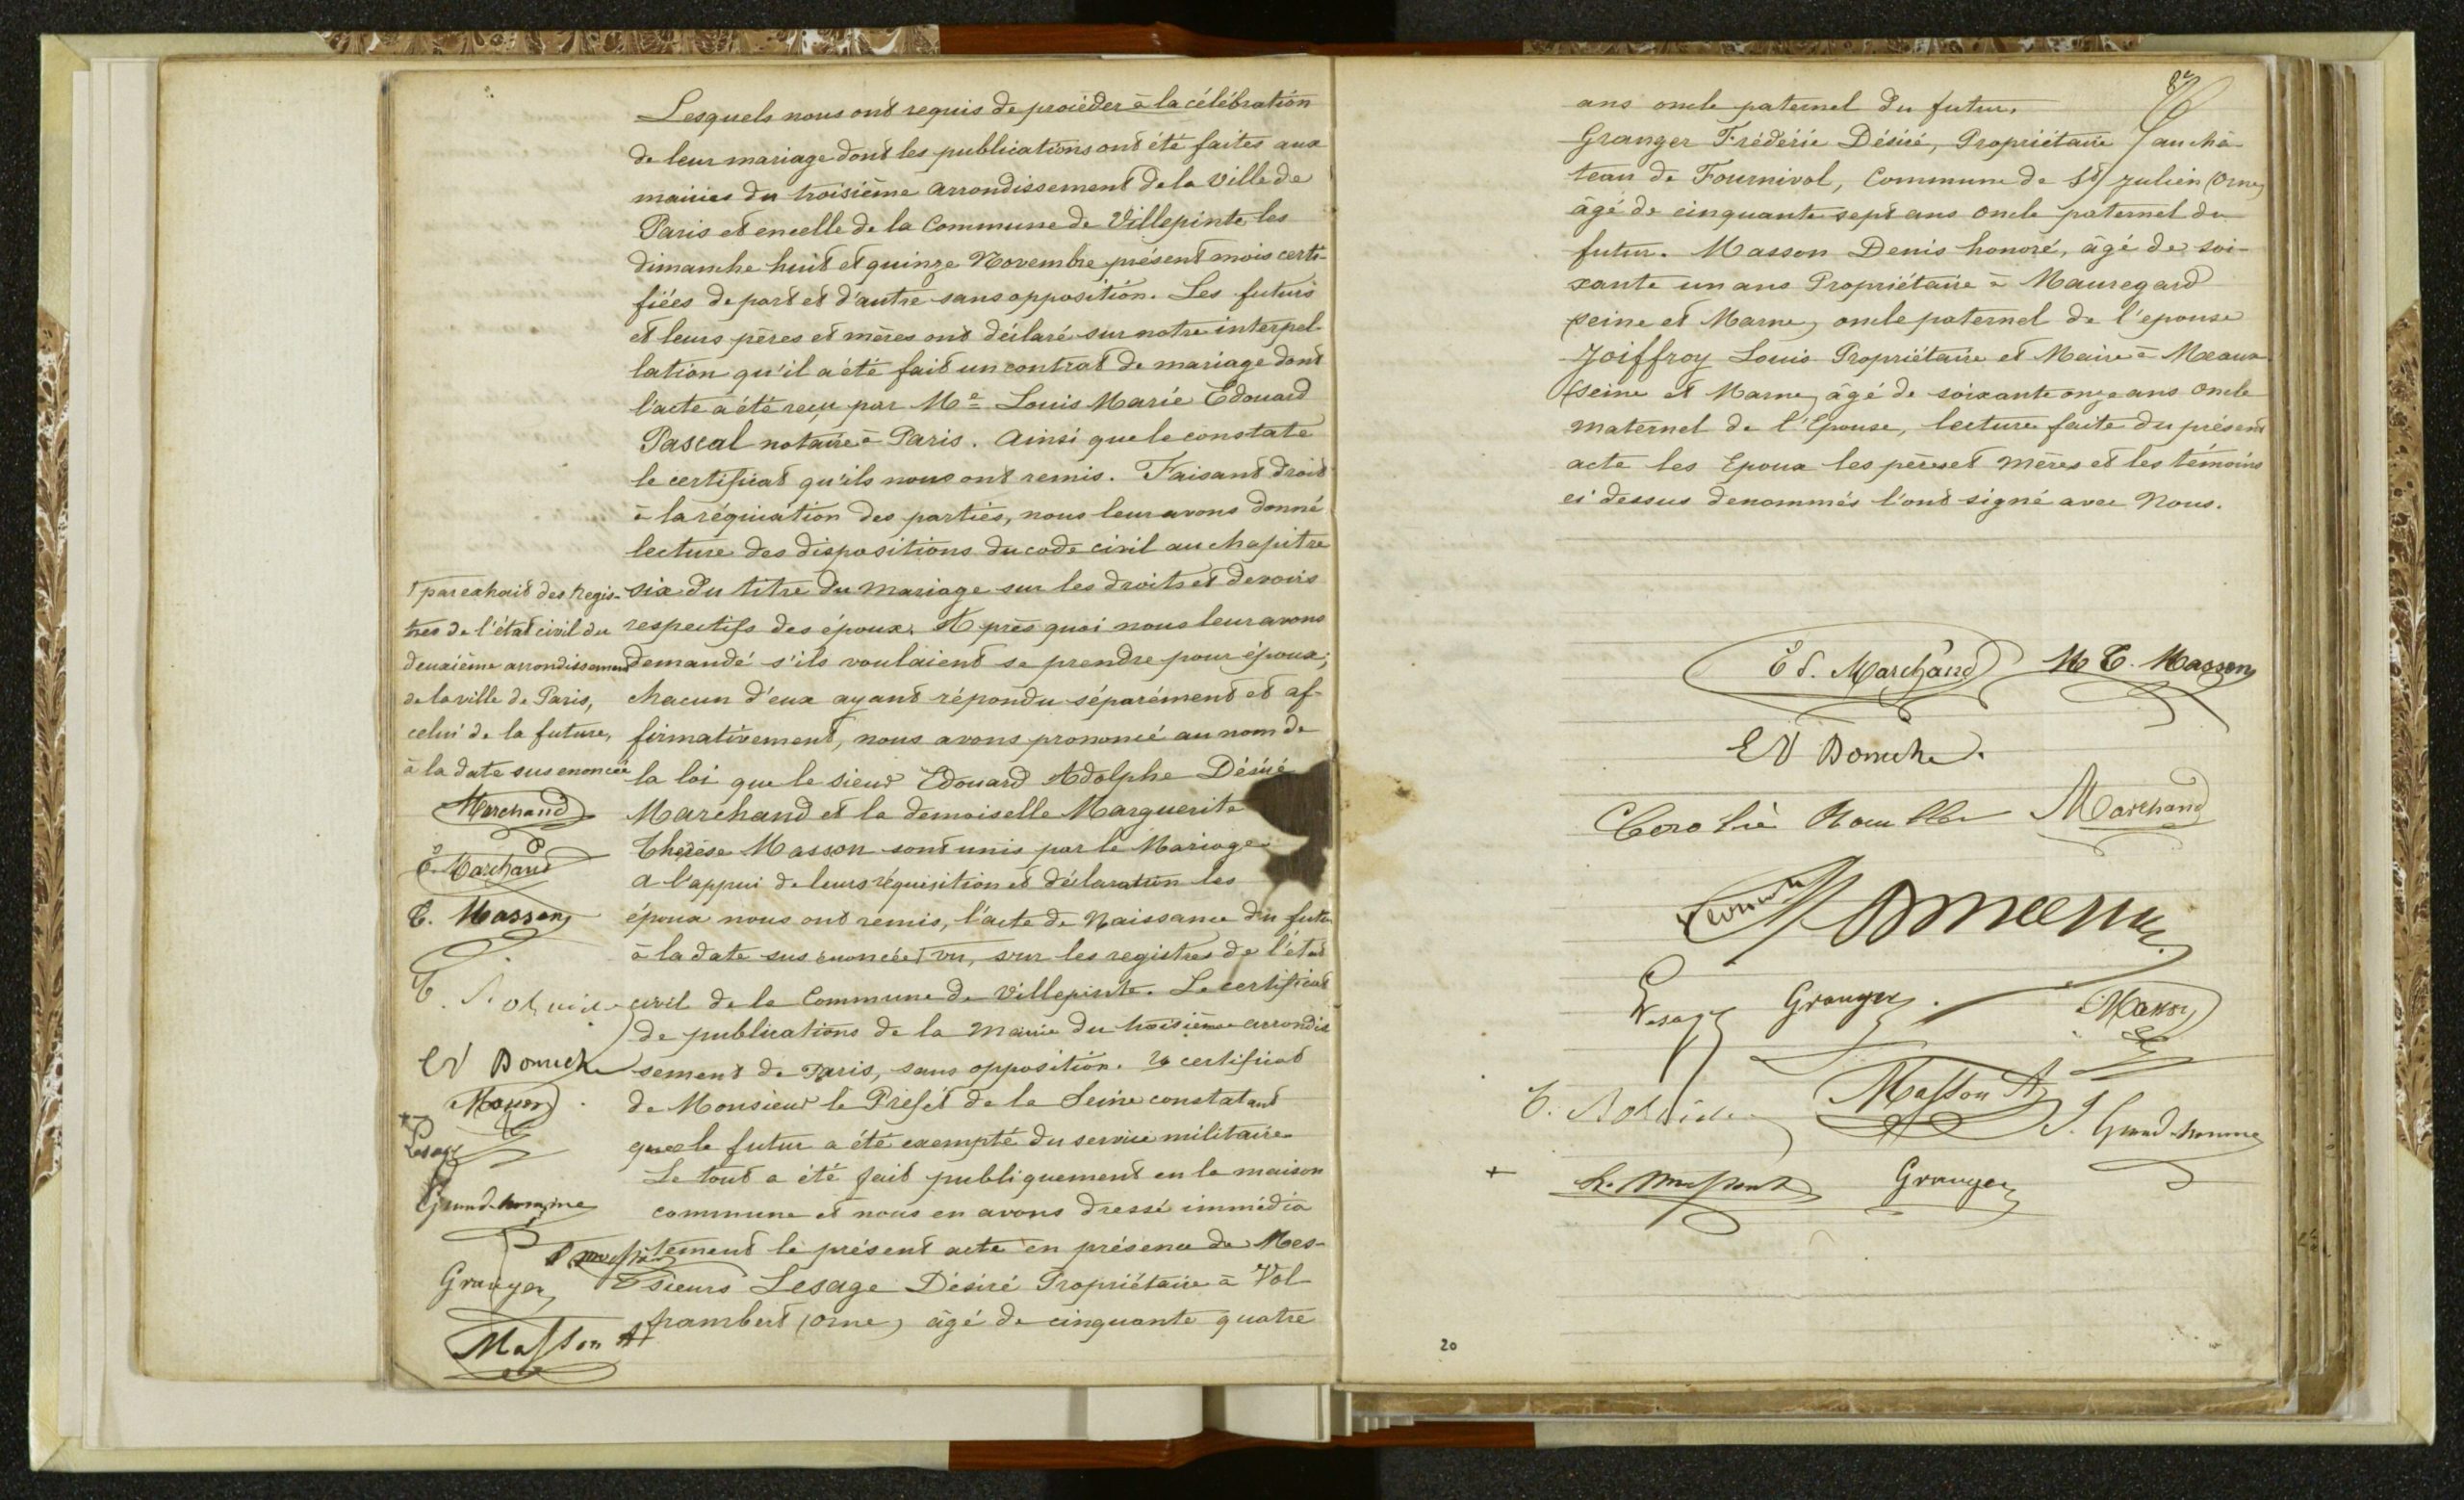 Lesquels nous ont requis de procéder à la célébration
de leur mariage dont les publications ont été faites aux
mairies du troisième arrondissement de la Ville de
Paris et en celle de la Commune de Villepinte les
dimanche huit et quinze Novembre présent mois certi-
fiées de part et d'autre sans opposition. Les futurs
et leurs pères et mères ont déclaré sur notre interpel-
lation qu'il a été fait un contrat de mariage dont
l'acte a été reçu par Me Louis Marie Edouard
Pascal notaire à Paris. Ainsi que le constate
le certificat qu'ils nous ont remis. Faisant droit
à la réquisition des parties, nous leur avons donné
lecture des dispositions du code civil au chapitre
six du titre du mariage sur les droits et devoirs
respectifs des époux. Après quoi nous leur avons
demandé s'ils voulaient se prendre pour époux;
chacun d'eux ayant répondu séparément et af-
firmativement, nous avons prononcé au nom de
la loi que le sieur Edouard Adolphe Désiré
Marchand et la demoiselle Marguerite
Thérèse Masson sont unis par le Mariage
A l'appui de leurs réquisition et déclaration les
époux nous ont remis, l'acte de Naissance du futur
à la date sus énoncée vu, sur les registres de l'état
civil de la Commune de Villepinte. Le certificat
de publications de la Mairie du troisième arrondis
sement de Paris, sans opposition. Le certificat
de Monsieur le Préfet de la Seine constatant
que le futur a été exempté du service militaire
Le tout a été fait publiquement en la maison
commune et nous en avons dressé immédia
tement le présent acte en présence de Mes-
sieurs Lesage Désiré Propriétaire à Vol-
frambert (Orne) âgé de cinquante quatre
par extrait des Regis-
tres de l'état civil du
deuxième arrondissement
de la ville de Paris,
celui de la future,
à la date sus enoncée
Marchand
E. Marchand
T. Masson
Masson
Lesage
Grandhomme
Granger
Masson A
ans oncle paternel du futur.
Granger Frédéric Désiré, Propriétaire au châ-
teau de Fournival, Commune de St Julien (Orne)
âgé de cinquante sept ans oncle paternel du
futur. Masson Denis honoré, âgé de soi-
xante un ans Propriétaire à Mauregard
(seine et Marne) oncle paternel de l'epouse
Joiffroy Louis Propriétaire et Maire à Meaux
(seine et Marne) âgé de soixante onze ans Oncle
maternel de l'Epouse, lecture faite du présent
acte les Epoux les pères et mères et les témoins
ci dessus denommés l'ont signé avec Nous.
Ed. Marchand M T. Masson
Marchand
Lesage Granger Masson
Masson A
J. Grandhomme
Granger
20